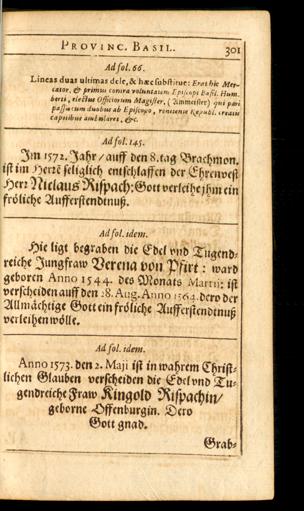 PROVINC. BASIL. 301
Ad fol. 66.
Lineas duas ultimas dele, & hæc substitue: Erat hic Mer-
cator, & primus contra voluntatem Episcopi Basil. Hum-
berti, electus Officiorum Magister, (Ammeister) qui pari
passu cum duobus ab Episcopo, renitente Republ. creatis
capitibus ambularet, &c.
Ad fol. 145.
Im 1572. Jahr/ auff den 8. tag Brachmon.
ist im Herrē seliglich entschlaffen der Ehrenvest
Herr Niclaus Rispach: Gott verleihe jhm ein
fröliche Aufferstendtnuß.
Ad fol. idem.
Hie ligt begraben die Edel vnd Tugend-
reiche Jungfraw Verena von Pfirt: ward
geboren Anno 1544. des Monats Martij: ist
verscheiden auff den 28. Aug. Anno 1564. dero der
Allmächtige Gott ein fröliche Aufferstendtnuß
verleihen wölle.
Ad fol. idem.
Anno 1573. den 2. Maji ist in wahrem Christ-
lichen Glauben verscheiden die Edel vnd Tu-
gendreiche Fraw Kingold Rispachin/
geborne Offenburgin. Dero
Gott gnad.
Grab-